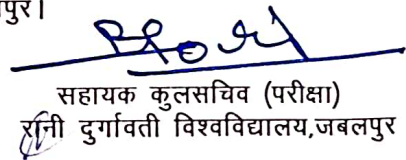 पुर।
सहायक कुलसचिव (परीक्षा)
रानी दुर्गावती विश्वविद्यालय,जबलपुर